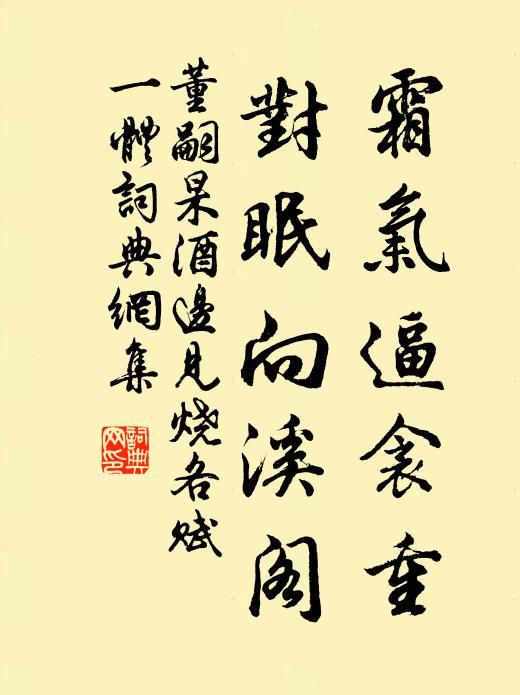 霜氣逼衾重
對眠向溪閣
董嗣杲酒邊見燒各賦
一體詞典網集
詞典網印